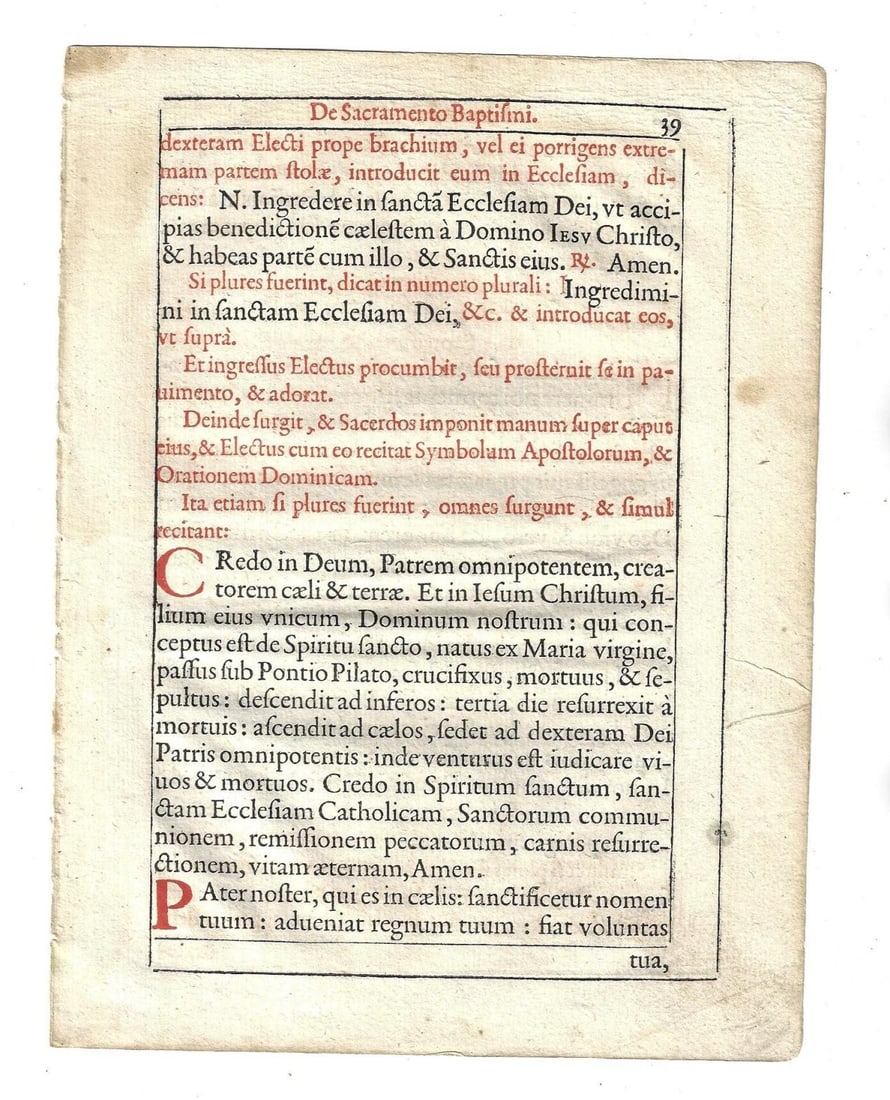 De Sacramento Baptiſmi.
39
dexteram Electi prope brachium, vel ei porrigens extre-
mam partem ſtolæ, introducit eum in Eccleſiam, di-
cens: N. Ingredere in ſanctā Eccleſiam Dei, vt acci-
pias benedictionē cæleſtem à Domino IESV Chriſto,
& habeas partē cum illo, & Sanctis eius. ℟. Amen.
Si plures fuerint, dicat in numero plurali: Ingredimi-
ni in ſanctam Eccleſiam Dei, &c. & introducat eos,
vt ſuprà.
Et ingreſſus Electus procumbit, ſeu proſternit ſe in pa-
uimento, & adorat.
Deinde ſurgit, & Sacerdos imponit manum ſuper caput
eius, & Electus cum eo recitat Symbolum Apoſtolorum, &
Orationem Dominicam.
Ita etiam ſi plures fuerint, omnes ſurgunt, & ſimul
recitant:
CRedo in Deum, Patrem omnipotentem, crea-
torem cæli & terræ. Et in Ieſum Chriſtum, fi-
lium eius vnicum, Dominum noſtrum: qui con-
ceptus eſt de Spiritu ſancto, natus ex Maria virgine,
paſſus ſub Pontio Pilato, crucifixus, mortuus, & ſe-
pultus: deſcendit ad inferos: tertia die reſurrexit à
mortuis: aſcendit ad cælos, ſedet ad dexteram Dei
Patris omnipotentis: inde venturus eſt iudicare vi-
uos & mortuos. Credo in Spiritum ſanctum, ſan-
ctam Eccleſiam Catholicam, Sanctorum commu-
nionem, remiſſionem peccatorum, carnis reſurre-
ctionem, vitam æternam, Amen.
PAter noſter, qui es in cælis: ſanctificetur nomen
tuum: adueniat regnum tuum: fiat voluntas
tua,